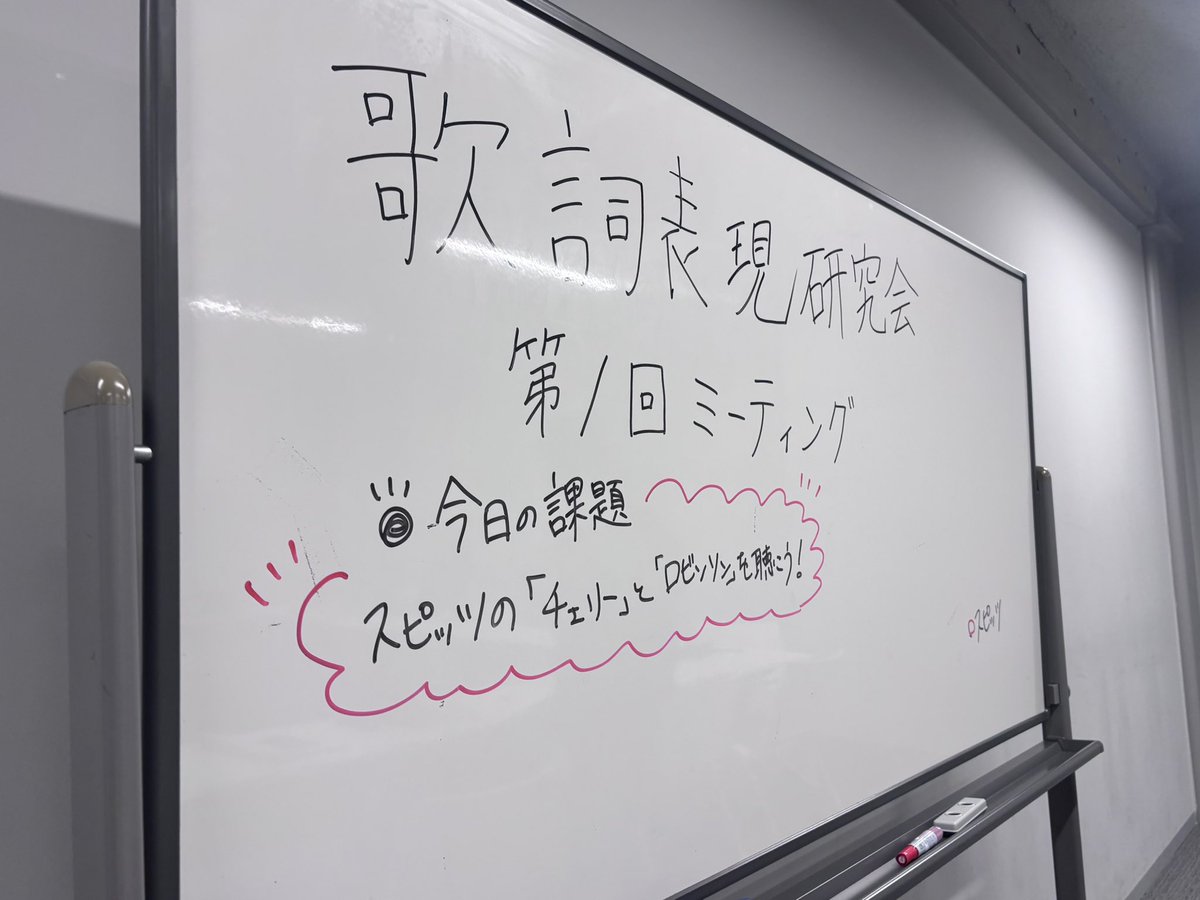 歌詞表現研究会
第1回ミーティング
◎今日の課題
スピッツの「チェリー」と「ロビンソン」を聴こう!
スピッツ